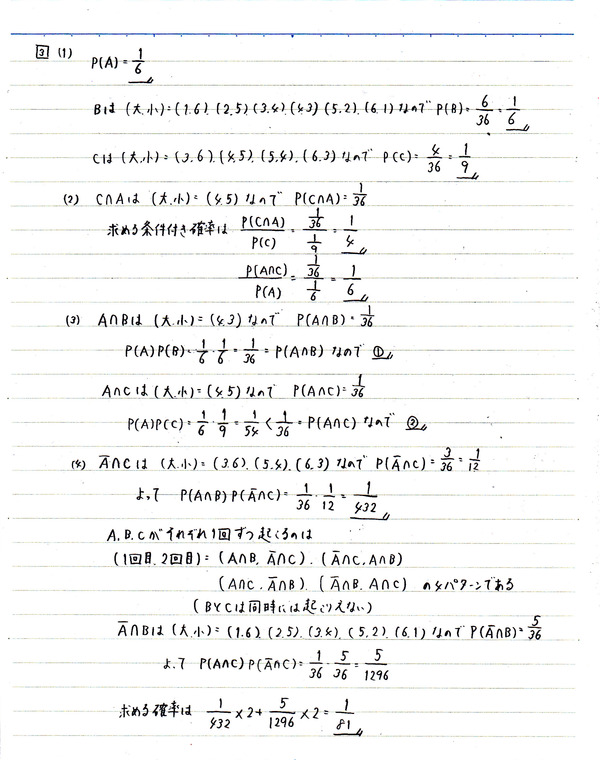 3 (1) P(A)=1/6
Bは (大,小)=(1,6),(2,5),(3,4),(4,3),(5,2),(6,1) なので P(B)=6/36=1/6
Cは (大,小)=(3,6),(4,5),(5,4),(6,3) なので P(C)=4/36=1/9
(2) C∩Aは (大,小)=(4,5) なので P(C∩A)=1/36
求める条件付き確率は P(C∩A)/P(C)=(1/36)/(1/9)=1/4
P(A∩C)/P(A)=(1/36)/(1/6)=1/6
(3) A∩Bは (大,小)=(4,3) なので P(A∩B)=1/36
P(A)P(B)=1/6・1/6=1/36=P(A∩B) なので ①
A∩Cは (大,小)=(4,5) なので P(A∩C)=1/36
P(A)P(C)=1/6・1/9=1/54<1/36=P(A∩C) なので ②
(4) A̅∩Cは (大,小)=(3,6),(5,4),(6,3) なので P(A̅∩C)=3/36=1/12
よって P(A∩B)P(A̅∩C)=1/36・1/12=1/432
A,B,Cがそれぞれ1回ずつ起こるのは
(1回目,2回目)=(A∩B,A̅∩C),(A̅∩C,A∩B)
(A∩C,A̅∩B),(A̅∩B,A∩C) の4パターンである
(BとCは同時には起こりえない)
A̅∩Bは (大,小)=(1,6),(2,5),(3,4),(5,2),(6,1) なので P(A̅∩B)=5/36
よって P(A∩C)P(A̅∩C)=1/36・5/36=5/1296
求める確率は 1/432×2+5/1296×2=1/81